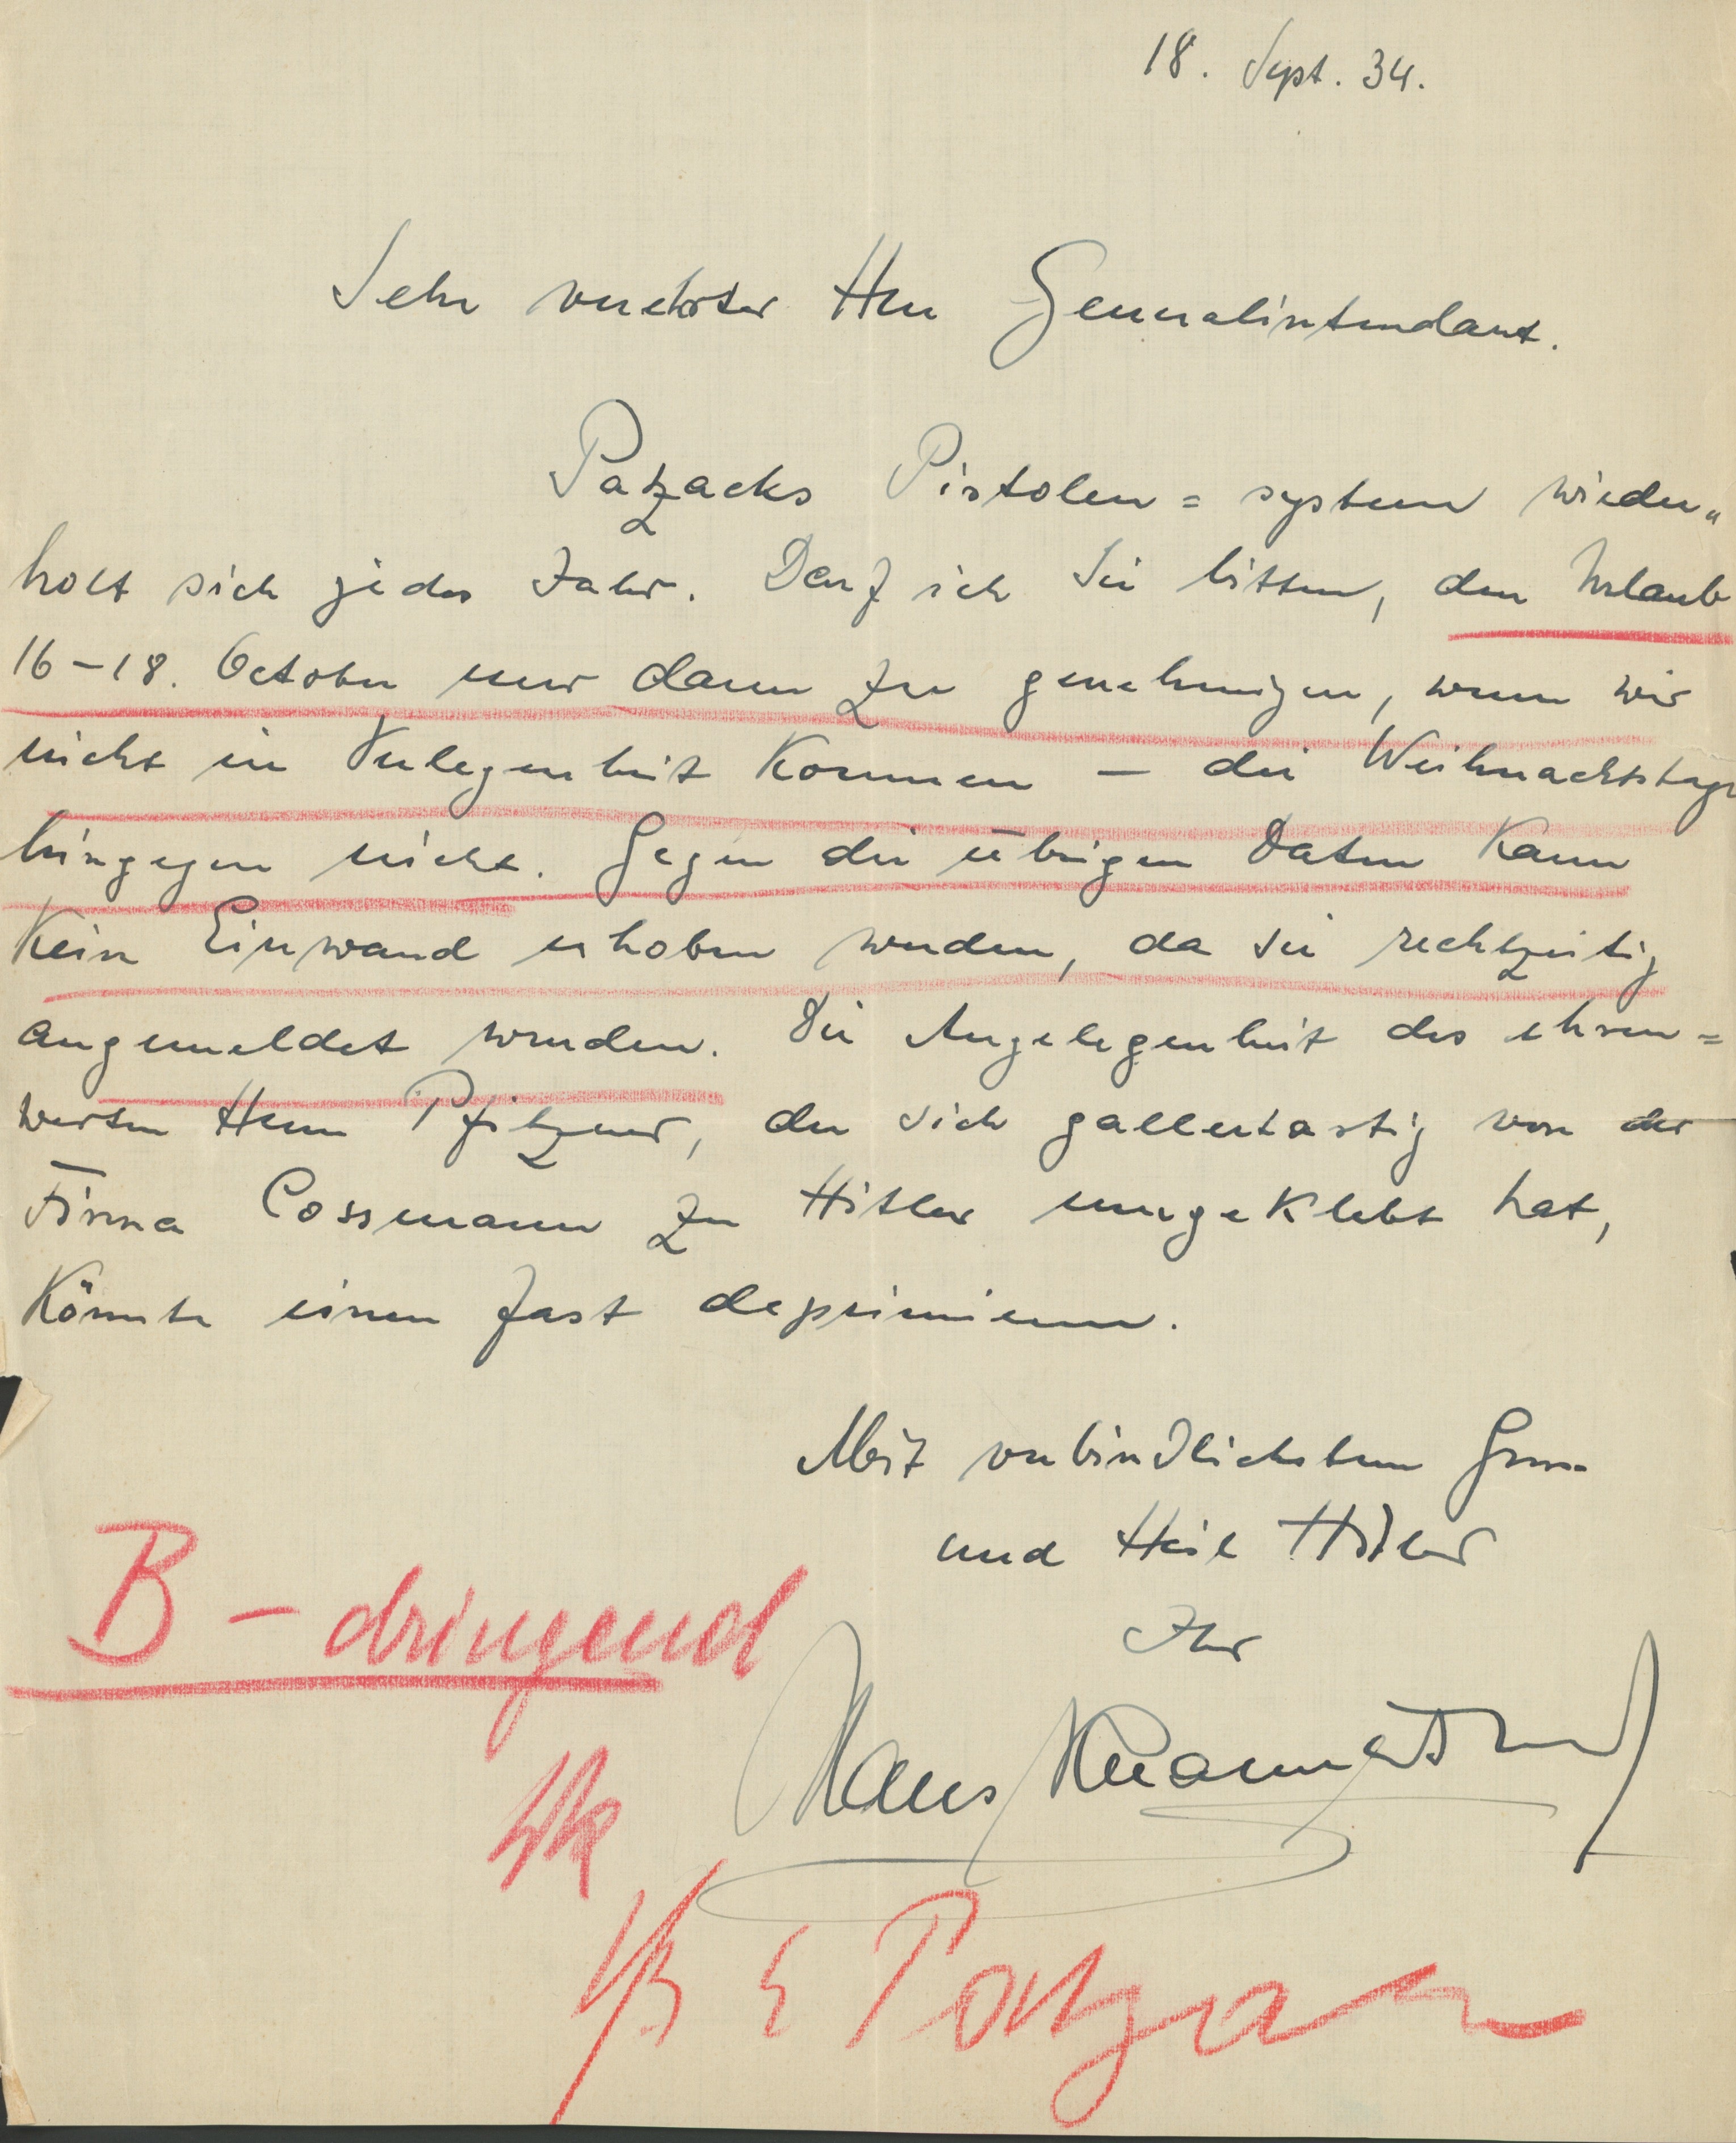 18. Sept. 34.
Sehr verehrter Herr Generalintendant.
Patzacks Pistolen = system wieder„
holt sich jedes Jahr. Darf ich Sie bitten, den Urlaub
16–18. October nur dann zu genehmigen, wenn wir
nicht in Verlegenheit kommen – die Weihnachtstage
hingegen nicht. Gegen die übrigen Daten kann
kein Einwand erhoben werden, da sie rechtzeitig
angemeldet wurden. Die Angelegenheit des ehren=
werten Herrn Pfitzner, der sich gallertartig von der
Firma Cossmann zu Hitler umgeklebt hat,
könnte einen fast deprimieren.
Mit verbindlichstem Gruss
und Heil Hitler
Ihr
Hans Knappertsbusch
B – dringend
Patzak